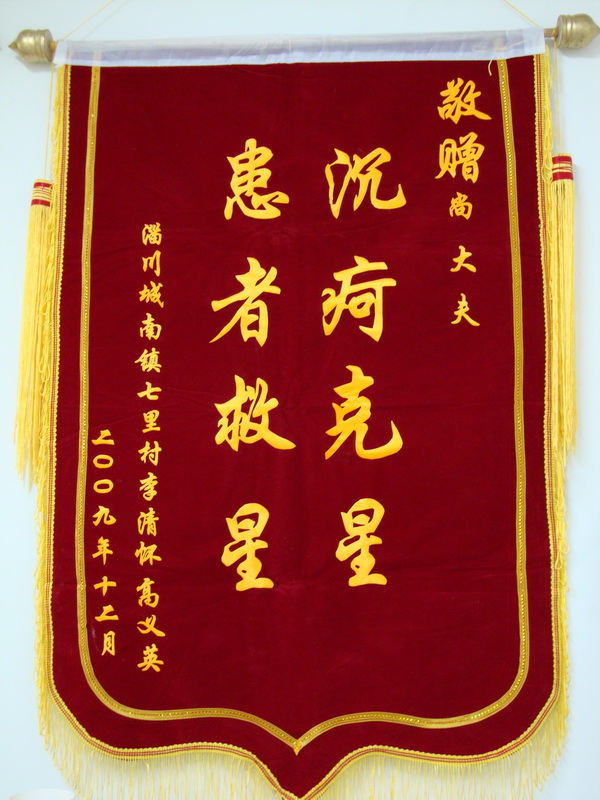 敬赠尚大夫
沉疴克星
患者救星
淄川城南镇七里村李清怀高义英
二〇〇九年十二月